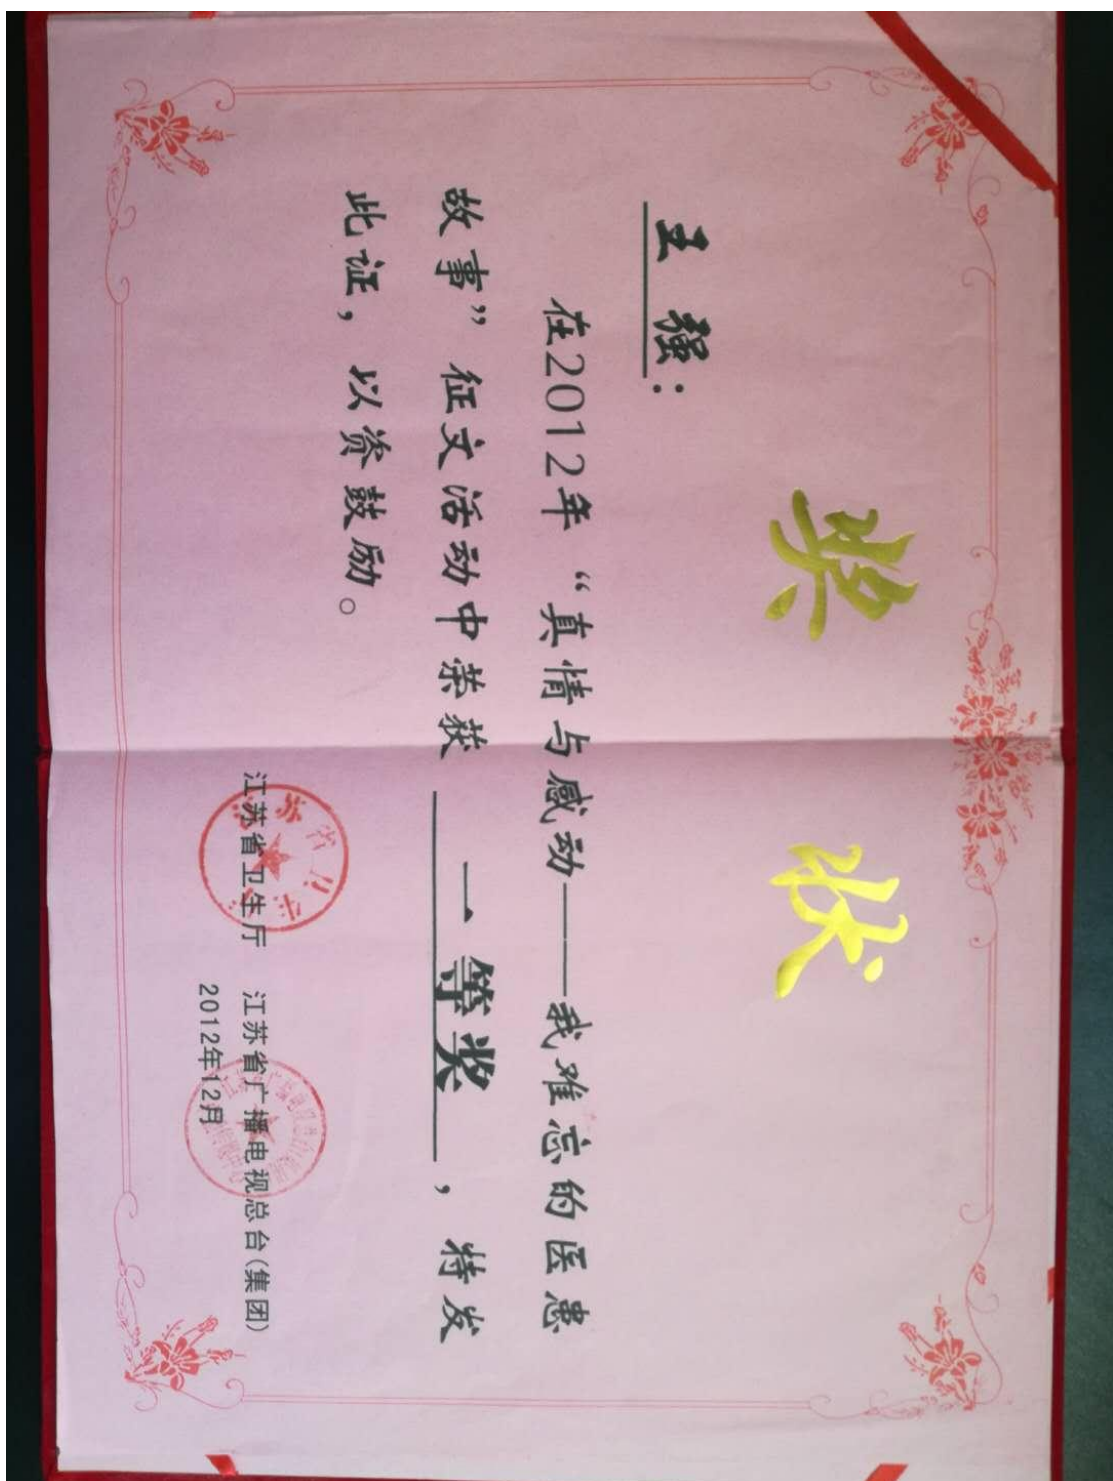 奖状
王强：
在2012年“真情与感动——我难忘的医患
故事”征文活动中荣获 一等奖 ，特发
此证，以资鼓励。
江苏省卫生厅 江苏省广播电视总台(集团)
2012年12月